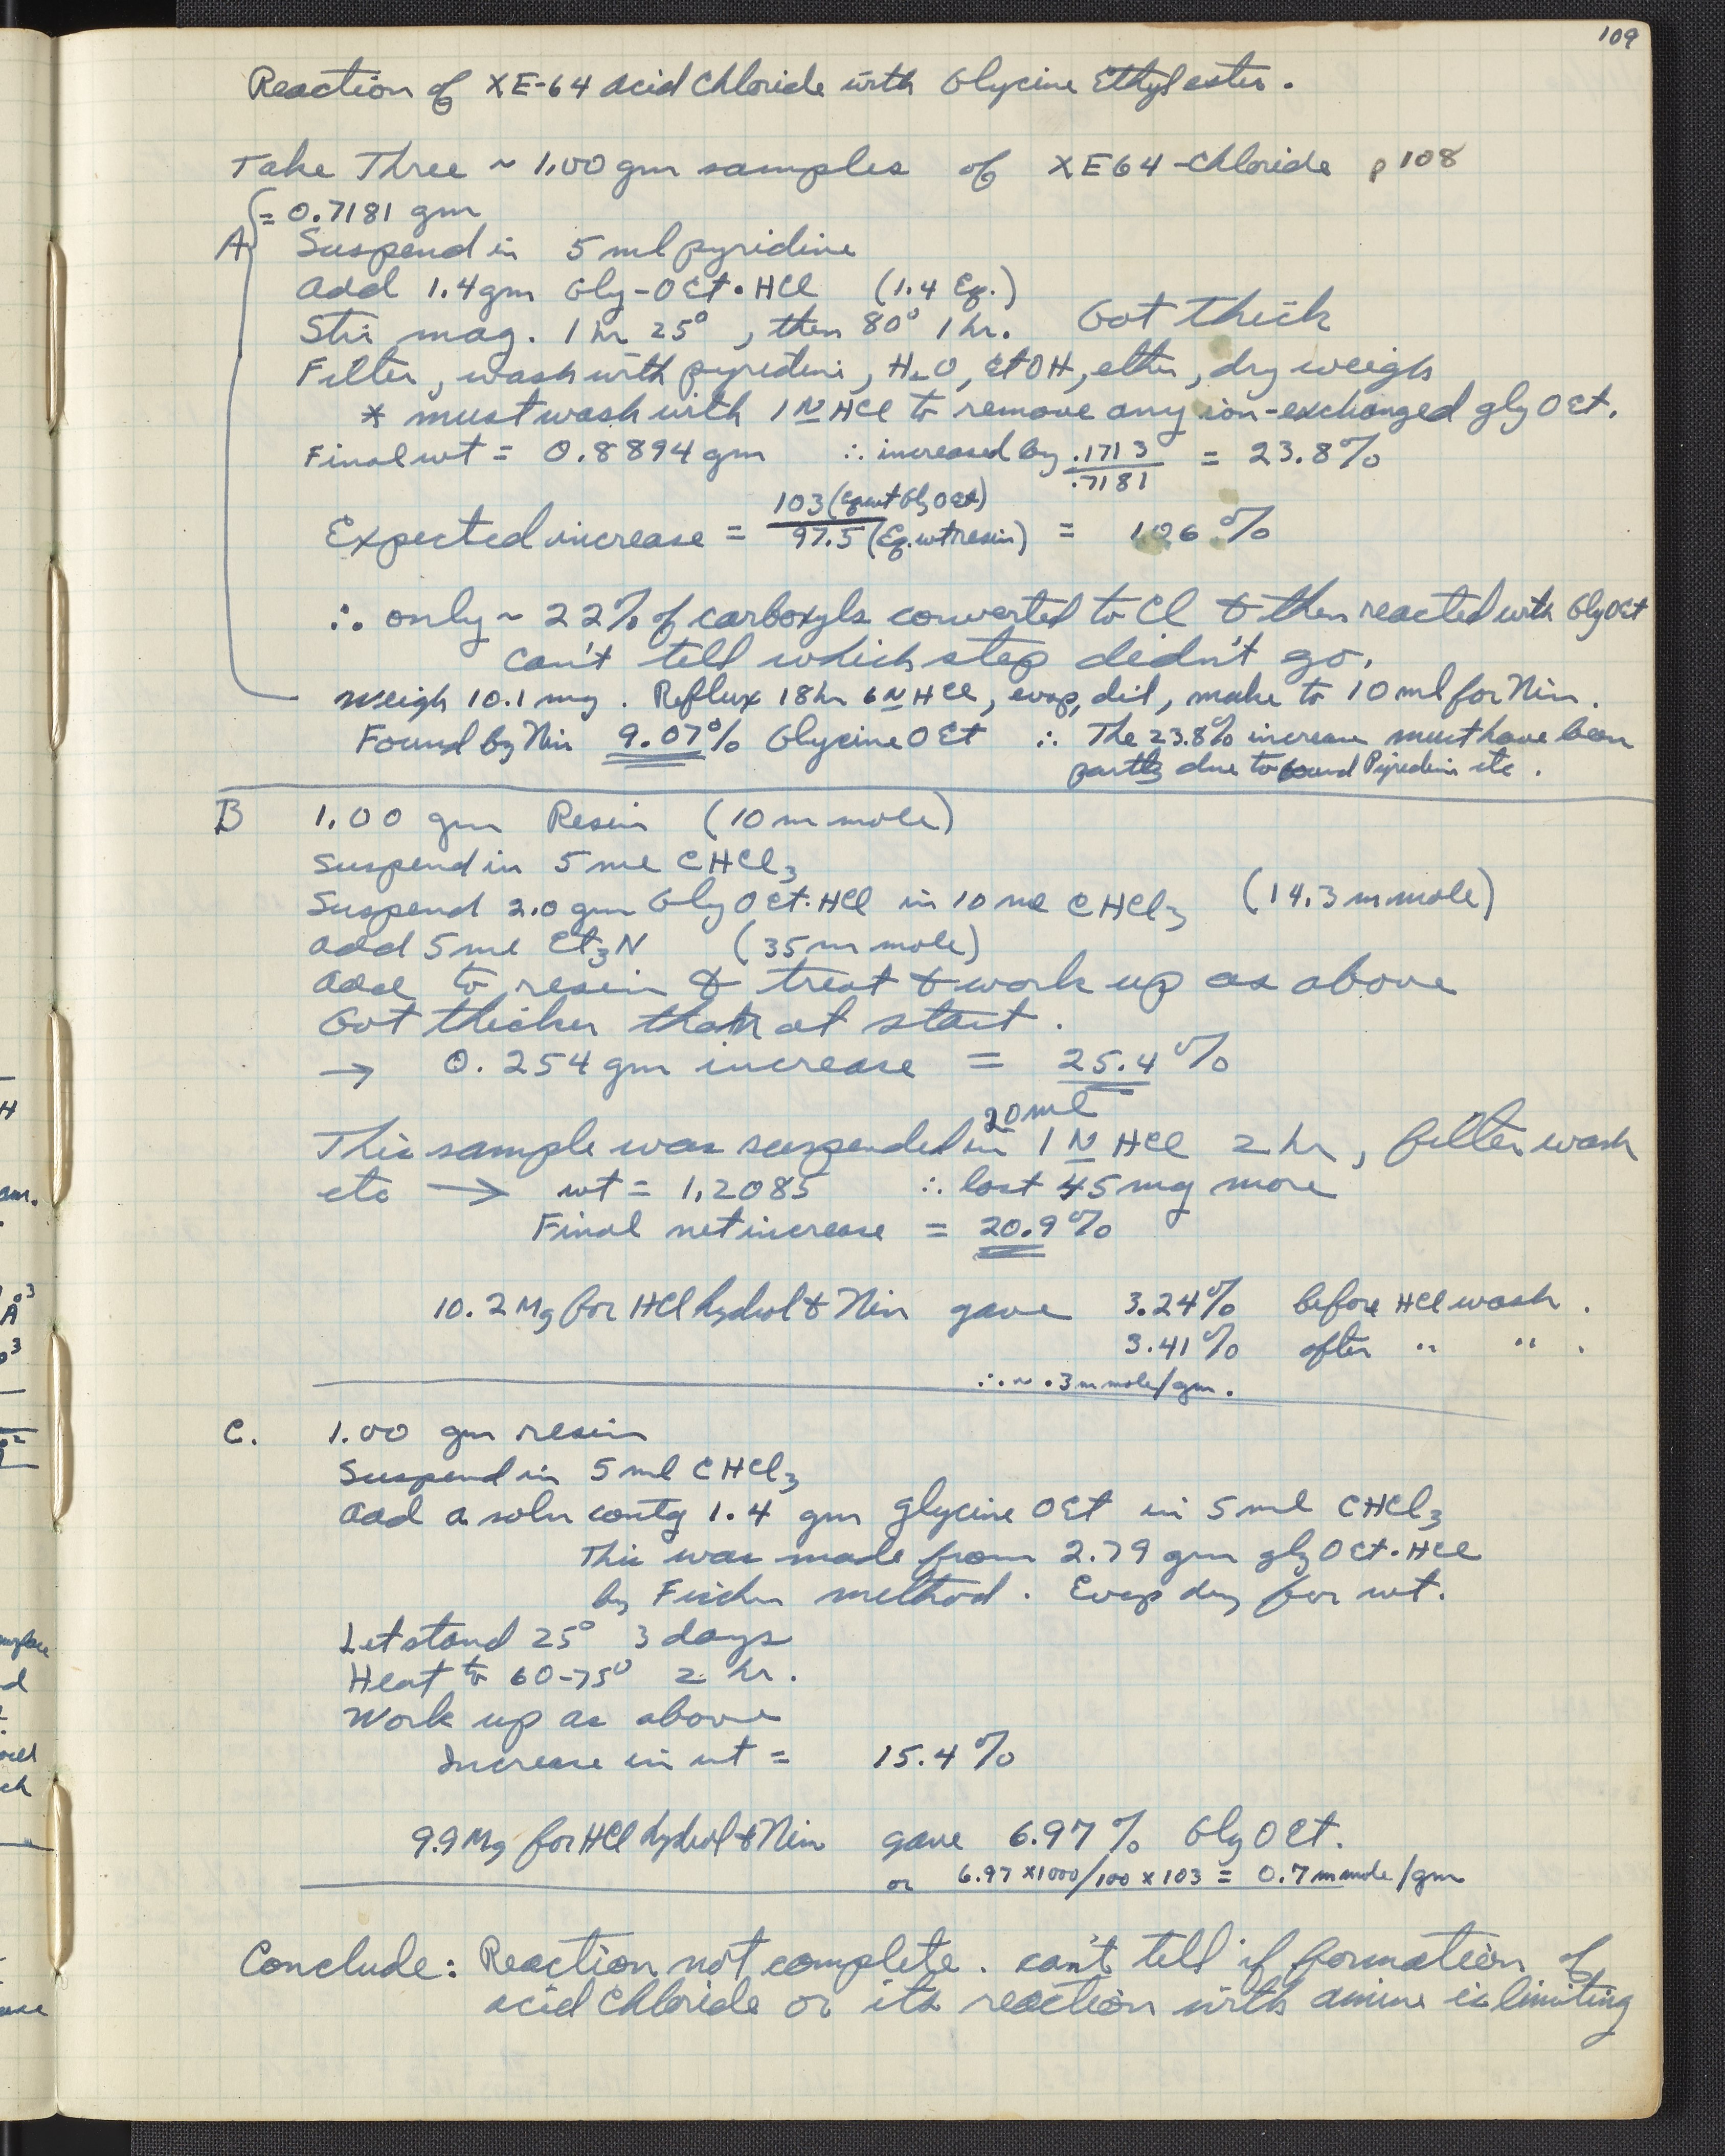 109
Reaction of XE-64 acid chloride with Glycine Ethyl ester.
Take Three ~ 1.00 gm samples of XE64-chloride p 108
= 0.7181 gm
A Suspend in 5 ml pyridine
Add 1.4 gm Gly-OEt·HCl (1.4 Eq.)
Stir mag. 1 hr 25°, then 80° 1 hr. Got thick
Filter, wash with pyridine, H2O, EtOH, ether, dry weigh
* must wash with 1 N HCl to remove any ion-exchanged glyOEt.
Final wt = 0.8894 gm ∴ increased by .1713/.7181 = 23.8%
Expected increase = 103 (Eq wt GlyOEt)/97.5 (Eq. wt resin) = 106 %
∴ only ~ 22% of carboxyls converted to Cl & then reacted with GlyOEt
can't tell which step didn't go.
Weigh 10.1 mg. Reflux 18 hr 6 N HCl, evap, dil, make to 10 ml for Nin.
Found by Nin 9.07% Glycine OEt ∴ The 23.8% increase must have been
partly due to bound Pyridine etc.
B 1.00 gm Resin (10 m mole)
Suspend in 5 ml CHCl3
Suspend 2.0 gm GlyOEt·HCl in 10 ml CHCl3 (14.3 m mole)
Add 5 ml Et3N (35 m mole)
Add to resin & treat & work up as above
Got thicker than at start.
→ 0.254 gm increase = 25.4%
This sample was suspended in 20 ml 1 N HCl 2 hr, filter wash
etc → wt = 1.2085 ∴ lost 45 mg more
Final net increase = 20.9%
10.2 Mg for HCl hydrol & Nin gave 3.24% before HCl wash.
3.41% after " ".
∴ ~ .3 m mole/gm.
C. 1.00 gm resin
Suspend in 5 ml CHCl3
Add a soln contg 1.4 gm glycine OEt in 5 ml CHCl3
This was made from 2.79 gm glyOEt·HCl
by Fischer method. Evap dry for wt.
Let stand 25° 3 days
Heat to 60-75° 2 hr.
Work up as above
Increase in wt = 15.4%
9.9 Mg for HCl hydrol & Nin gave 6.97% GlyOEt.
or 6.97 x 1000/100 x 103 = 0.7 m mole/gm
Conclude: Reaction not complete. can't tell if formation of
acid chloride or its reaction with amine is limiting